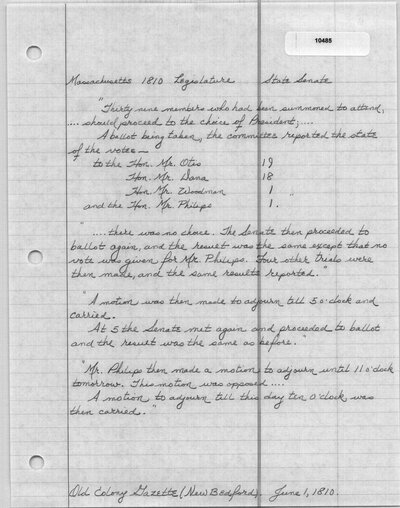 10485
Massachusetts 1810 Legislature State Senate
"Thirty nine members who had been summoned to attend,
.... should proceed to the choice of President; ....
A ballot being taken, the committee reported the state
of the votes—
to the Hon. Mr. Otis 19
Hon. Mr. Dana 18
Hon. Mr. Woodman 1
and the Hon. Mr. Philips 1. "
"....there was no choice. The Senate then proceeded to
ballot again, and the result was the same except that no
vote was given for Mr. Philips. Four other trials were
then made, and the same results reported."
"A motion was then made to adjourn till 5 o'clock and
carried.
At 5 the Senate met again and proceeded to ballot
and the result was the same as before."
"Mr. Philips then made a motion to adjourn until 11 o'clock
tomorrow. This motion was opposed ....
A motion to adjourn till this day ten o'clock was
then carried."
Old Colony Gazette (New Bedford). June 1, 1810.